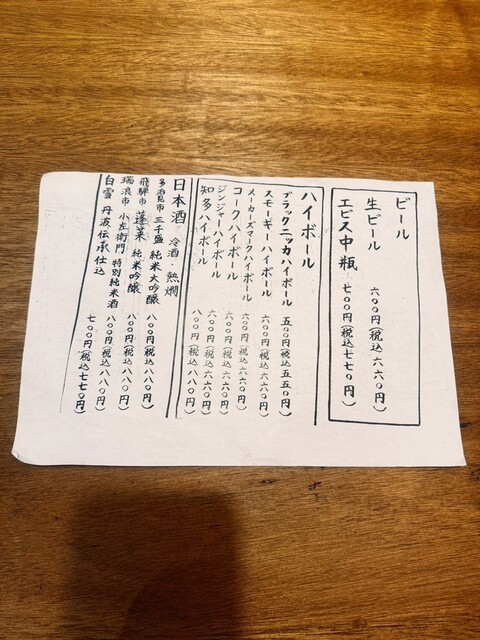 ビール
生ビール 六〇〇円(税込六六〇円)
エビス中瓶 七〇〇円(税込七七〇円)
ハイボール
ブラックニッカハイボール 五〇〇円(税込五五〇円)
スモーキーハイボール 六〇〇円(税込六六〇円)
メーカーズマークハイボール 六〇〇円(税込六六〇円)
コークハイボール 六〇〇円(税込六六〇円)
ジンジャーハイボール 六〇〇円(税込六六〇円)
知多ハイボール 八〇〇円(税込八八〇円)
日本酒 冷酒・熱燗
多治見市 三千盛 純米大吟醸 八〇〇円(税込八八〇円)
飛騨市 蓬莱 純米吟醸 八〇〇円(税込八八〇円)
瑞浪市 小左衛門 特別純米酒 八〇〇円(税込八八〇円)
白雪 丹波伝承仕込 七〇〇円(税込七七〇円)